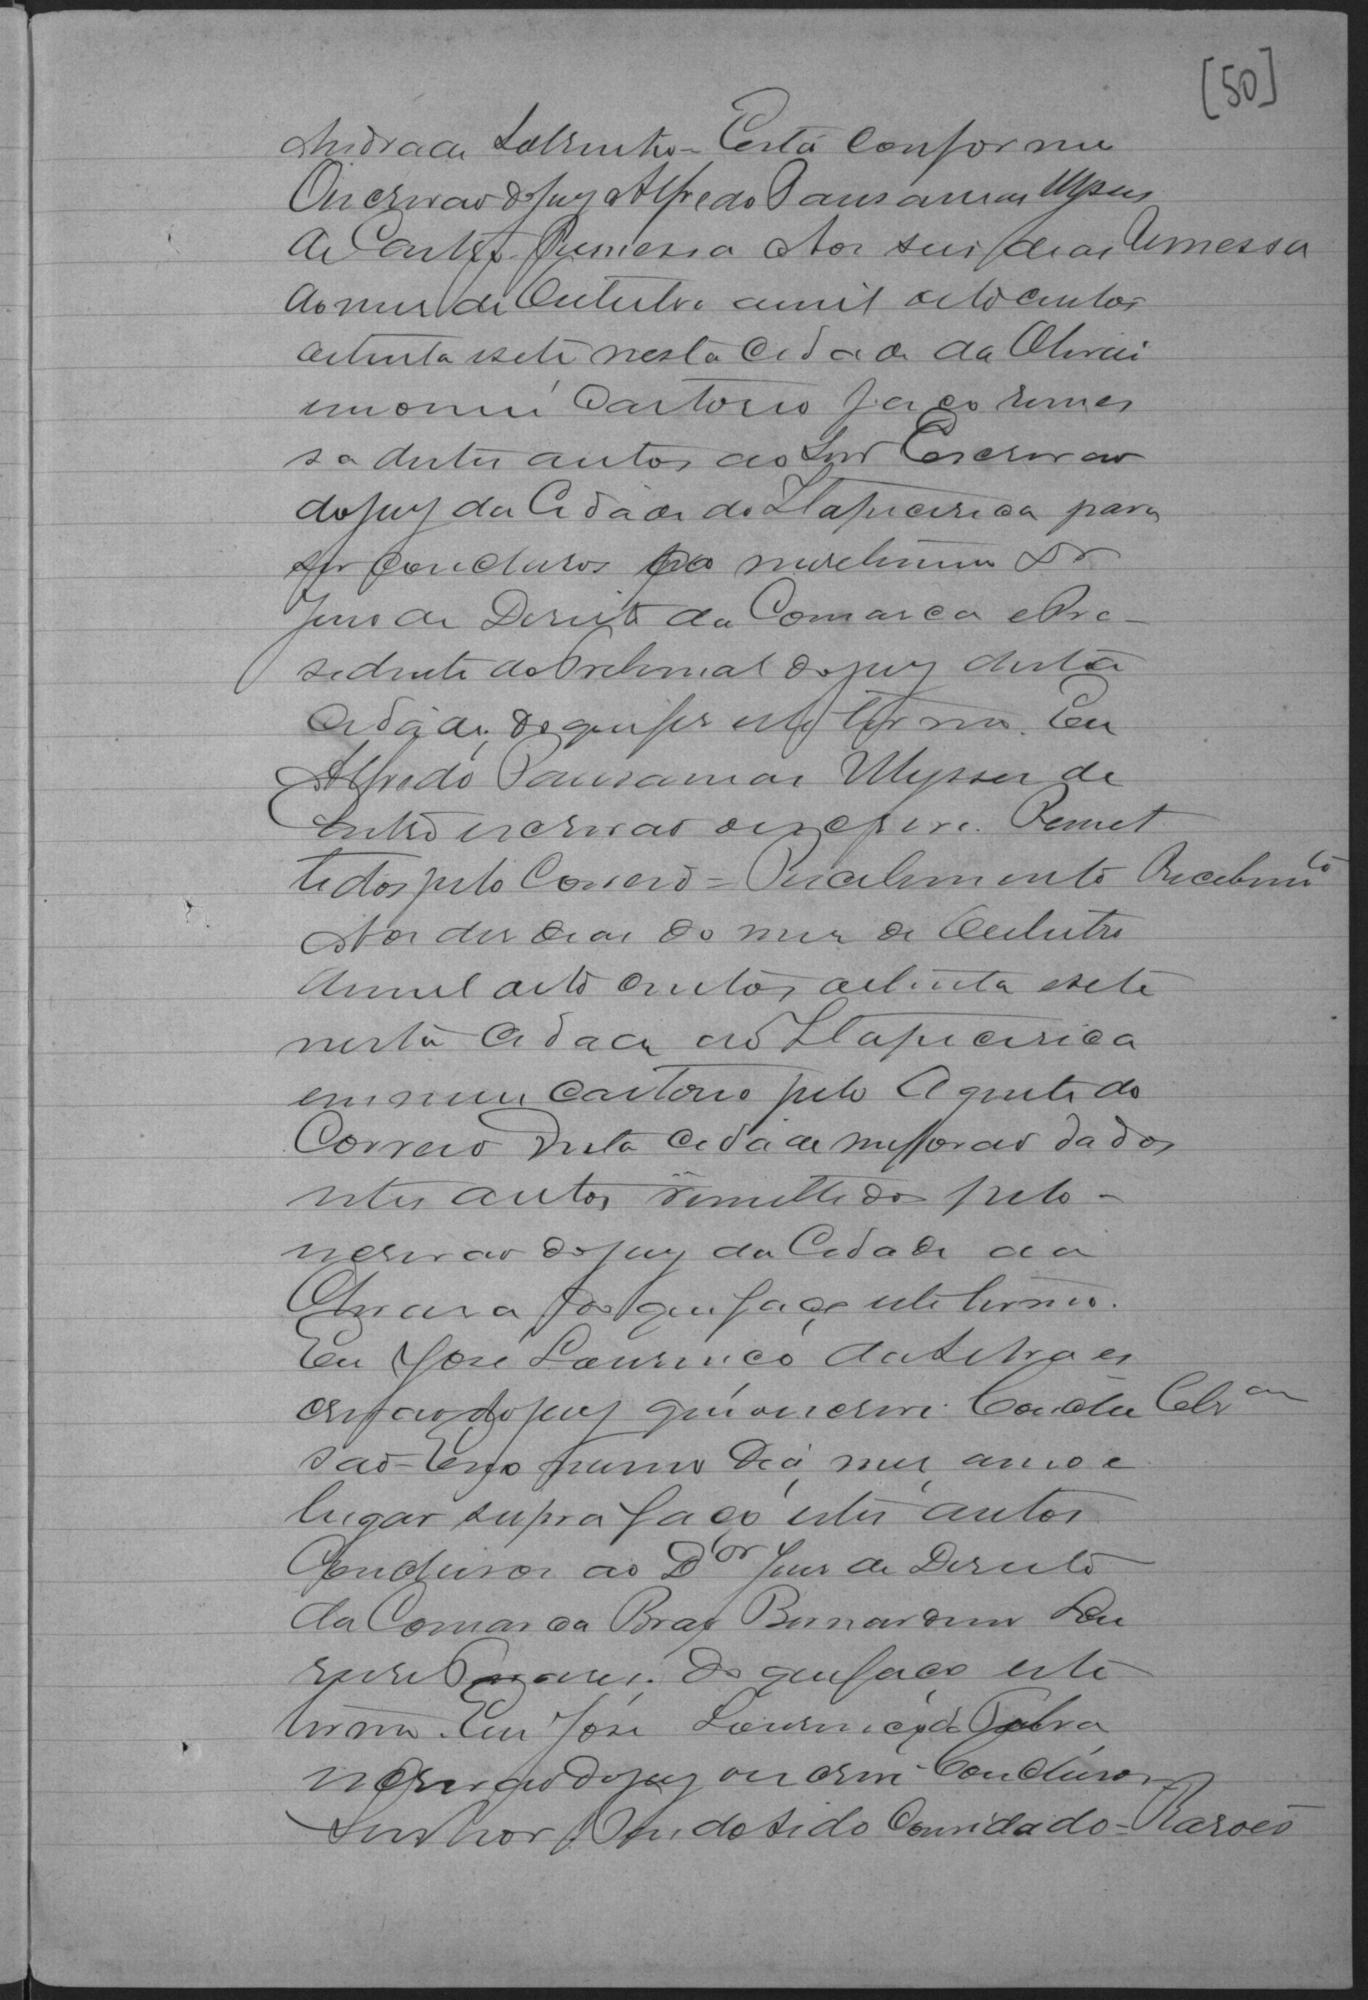 [50]
Andrade Sobrinho – Está conforme
O escrivão do jury Alfredo Pausanias Ulysses
de Castro. Remessa Aos seis dias Remessa
do mes de Outubro de mil oito centos
oitenta e sete nesta Cidade da Olivei
em meu Cartorio faço remes
sa destes autos ao Snr Escrivão
do jury da Cidade do Itapecerica para
ser conclusos ao meretissimo Dr
Juis de Direito da Comarca e Pre-
sidente do Tribunal do jury desta
Cidade, do que fis este termo. Eu
Alfredo Pausanias Ulysses de
Castro escrivão o escrevi. Remet
tidos pelo Correio = Recebimento Recebimto
Aos des dias do mes de Outubro
de mil oito centos, oitenta e sete
nesta Cidade do Itapecerica
em meu cartorio pelo Agente do
Correio desta Cidade me forão dados
estes autos remettidos pelo –
escrivão do jury da Cidade da
Oliveira do que faço este termo.
Eu José Lourenço da Silva es
crivão do jury que o escrevi. Conclu Clsam
são – E no mesmo dia, mes, anno e
lugar supra faço estes autos
Conclusos ao Dor Juis de Direito
da Comarca Bras Bernardino Lou
reiro Tavares. Do que faço este
termo. Eu José Lourenço da Silva
escrivão do jury o escrevi. Conclusos
Senhor. Tendo sido Convidado = Rasões